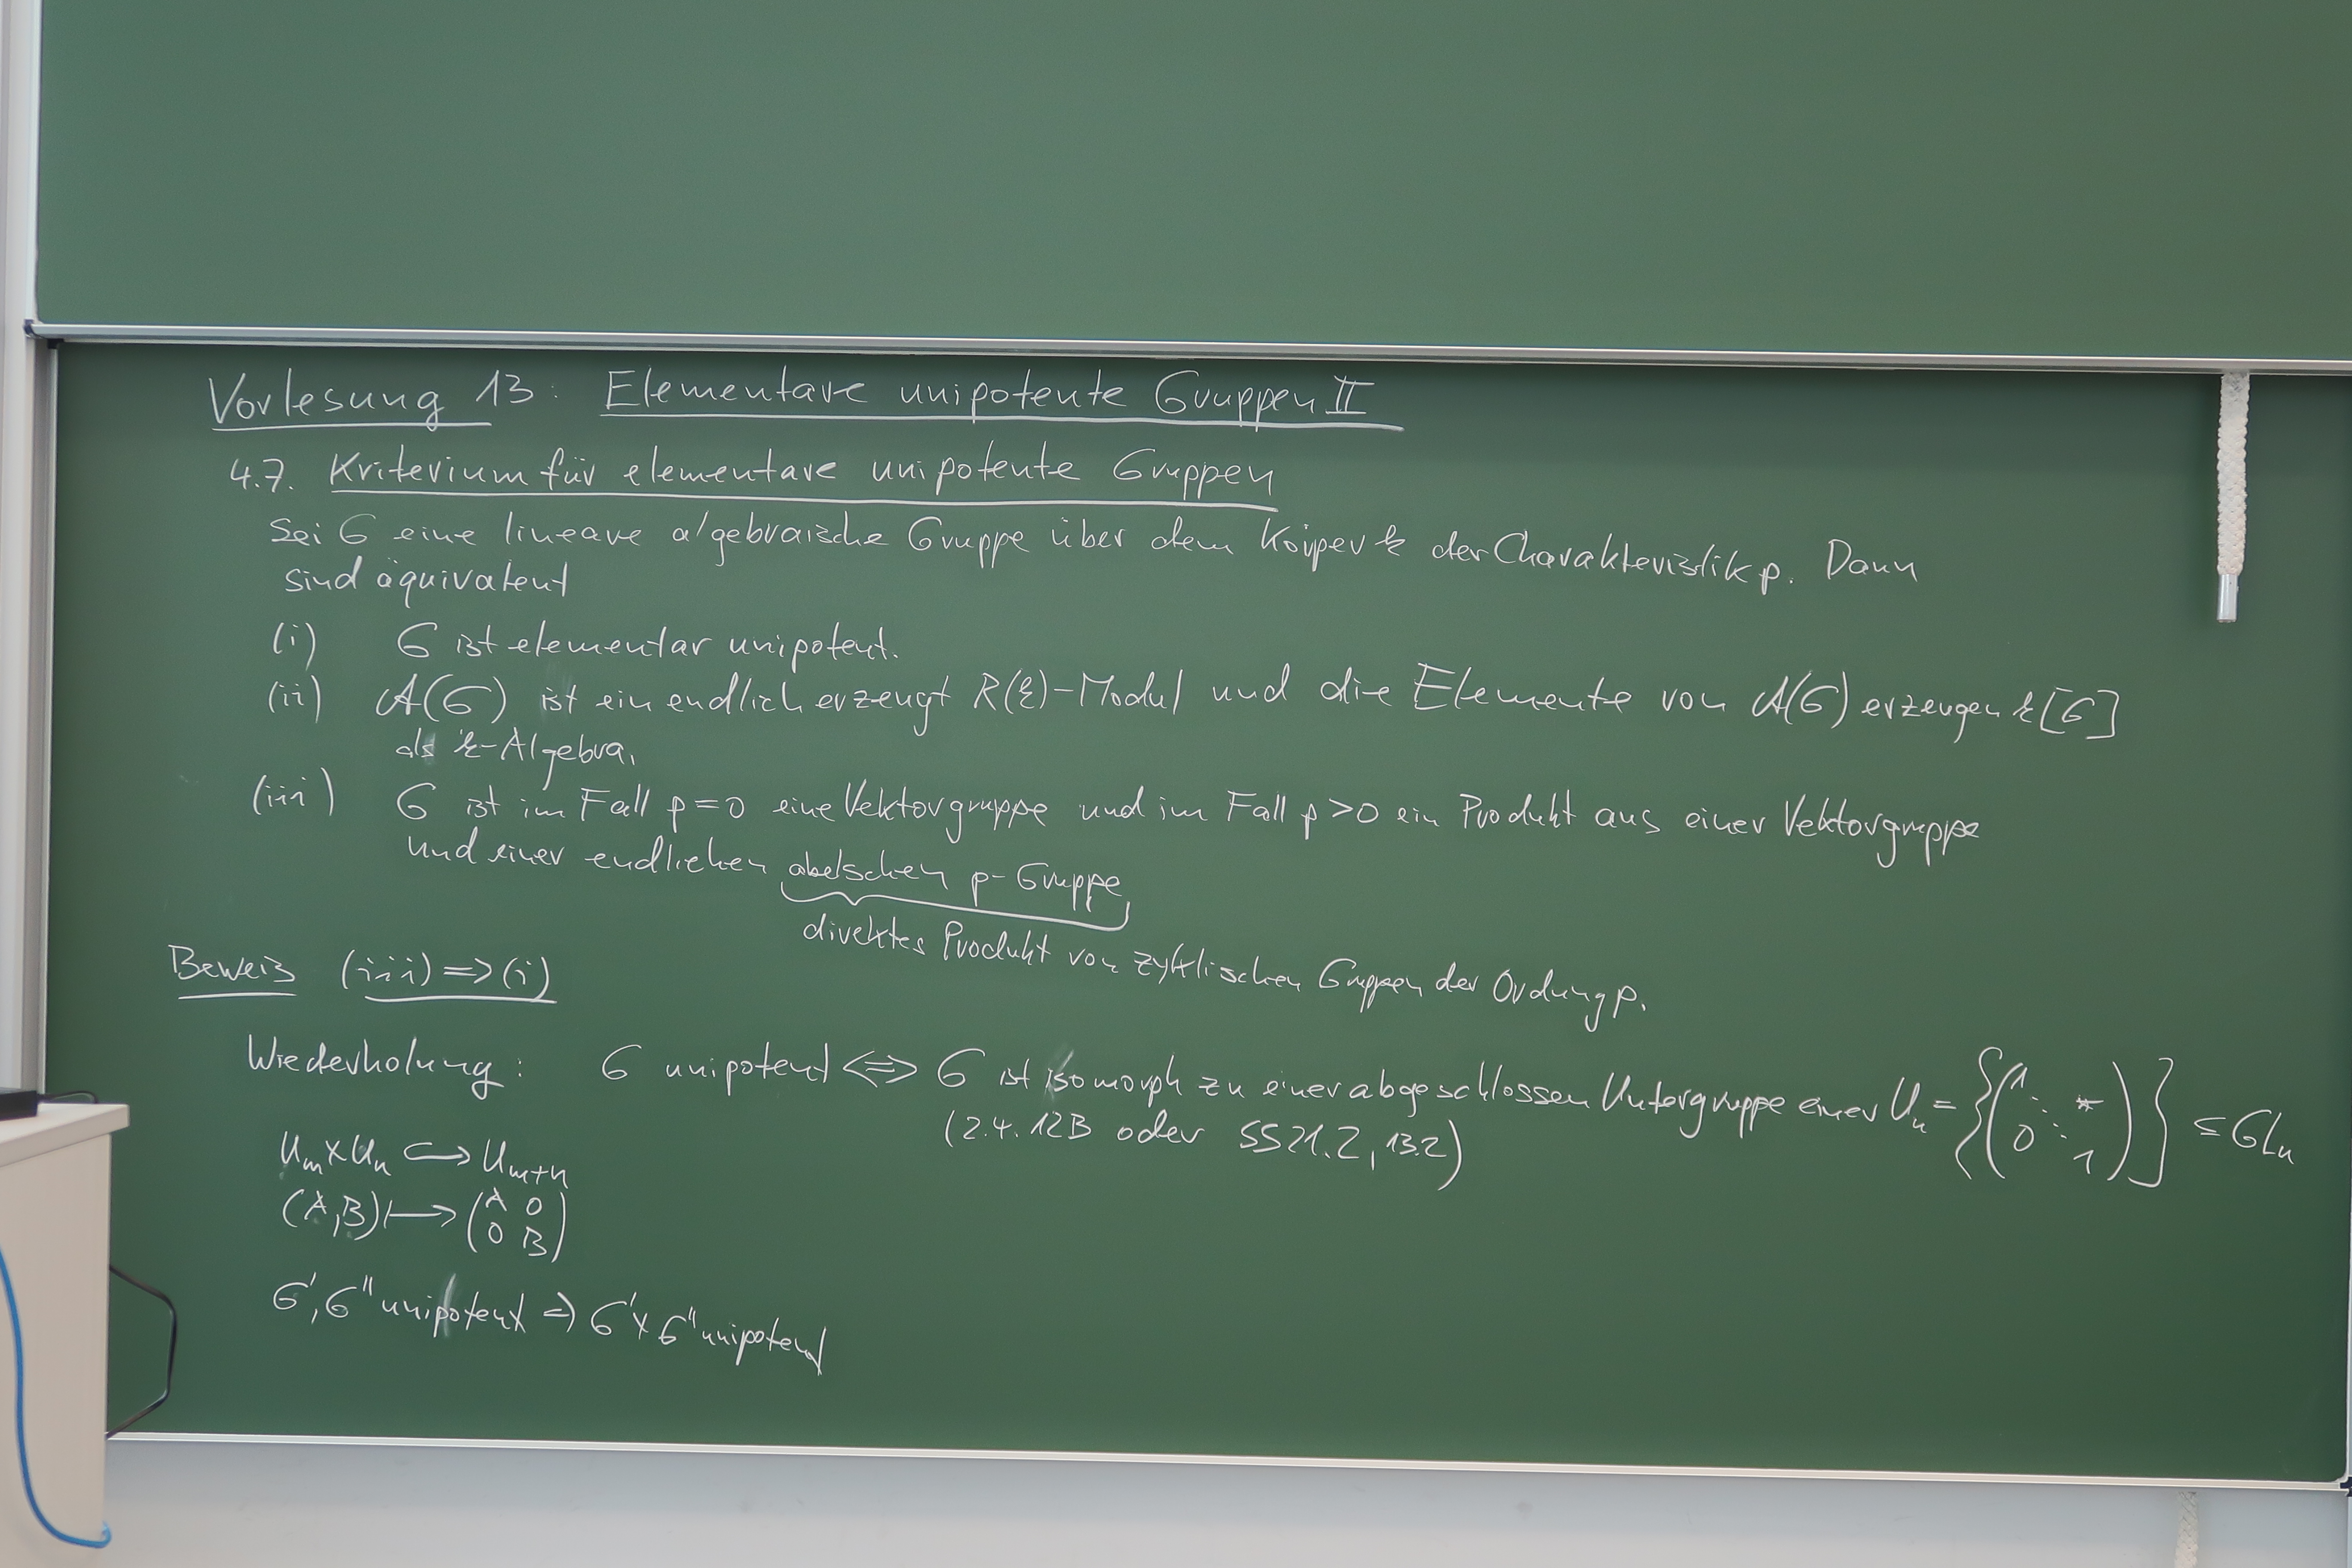 Vorlesung 13: Elementare unipotente Gruppen II
4.7. Kriterium für elementare unipotente Gruppen
Sei G eine lineare algebraische Gruppe über dem Körper k der Charakteristik p. Dann
sind äquivalent
(i) G ist elementar unipotent.
(ii) A(G) ist ein endlich erzeugt R(k)-Modul und die Elemente von A(G) erzeugen k[G]
als k-Algebra.
(iii) G ist im Fall p=0 eine Vektorgruppe und im Fall p>0 ein Produkt aus einer Vektorgruppe
und einer endlichen abelschen p-Gruppe
direktes Produkt von zyklischen Gruppen der Ordung p.
Beweis (iii) => (i)
Wiederholung: G unipotent <=> G ist isomorph zu einer abgeschlossen Untergruppe einer Uₙ = {(1 ⋱ * 0 ⋱ 1)} ≤ GLₙ
(2.4.12B oder SS21.2, 13.2)
Uₘ×Uₙ ↪ Uₘ₊ₙ
(A,B) ↦ (A 0
0 B)
G', G'' unipotent => G'×G'' unipotent